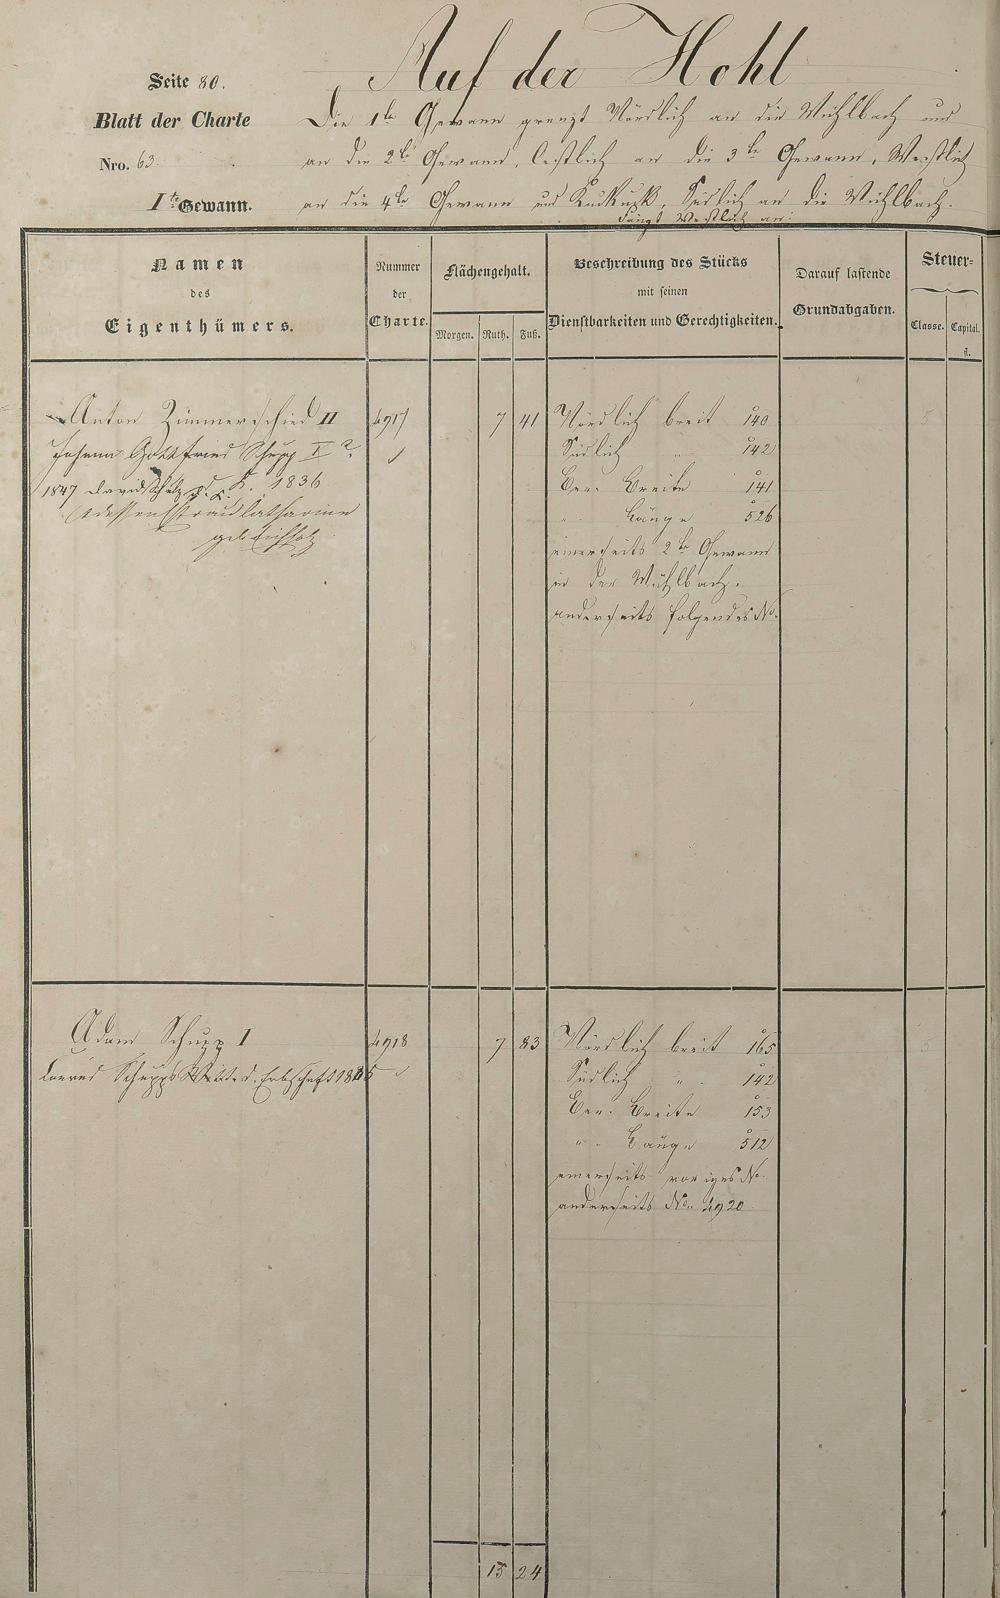 Auf der Hohl
Seite 80.
Blatt der Charte
Nro. 63.
Ite Gewann.
Die 1te Gewann grenzt Nördlich an die Mühlbach und
an die 2te Gewann, Oestlich an die 3te Gewann, Westlich
an die 4te Gewann und Kuckuck, Südlich an die Mühlbach.
Fängt Westlich an:
Namen
des
Eigenthümers.
Nummer
der
Charte.
Flächengehalt.
Morgen. Ruth. Fuß.
Beschreibung des Stücks
mit seinen
Dienstbarkeiten und Gerechtigkeiten.
Darauf lastende
Grundabgaben.
Steuer-
Classe. Capital.
fl.
Anton Zimmerschied II 4917 7 41 Nördlich breit 140 5
Johann Gottfried Schupp I Südlich " 142
1847 David Schütz d. K. 1836 Ber. Breite 141
dessen Catharine " Länge 526
geb.
einerseits 2te Gewann
in der Mühlbach.
anderseits folgendes No.
Adam Schupp I 4918 7 83 Nördlich breit 165 5
Conrad Schupps Witt. d. Erbschaft Südlich " 142
Ber. Breite 153
" Länge 512
einerseits voriges No.
anderseits No. 4920
15 24